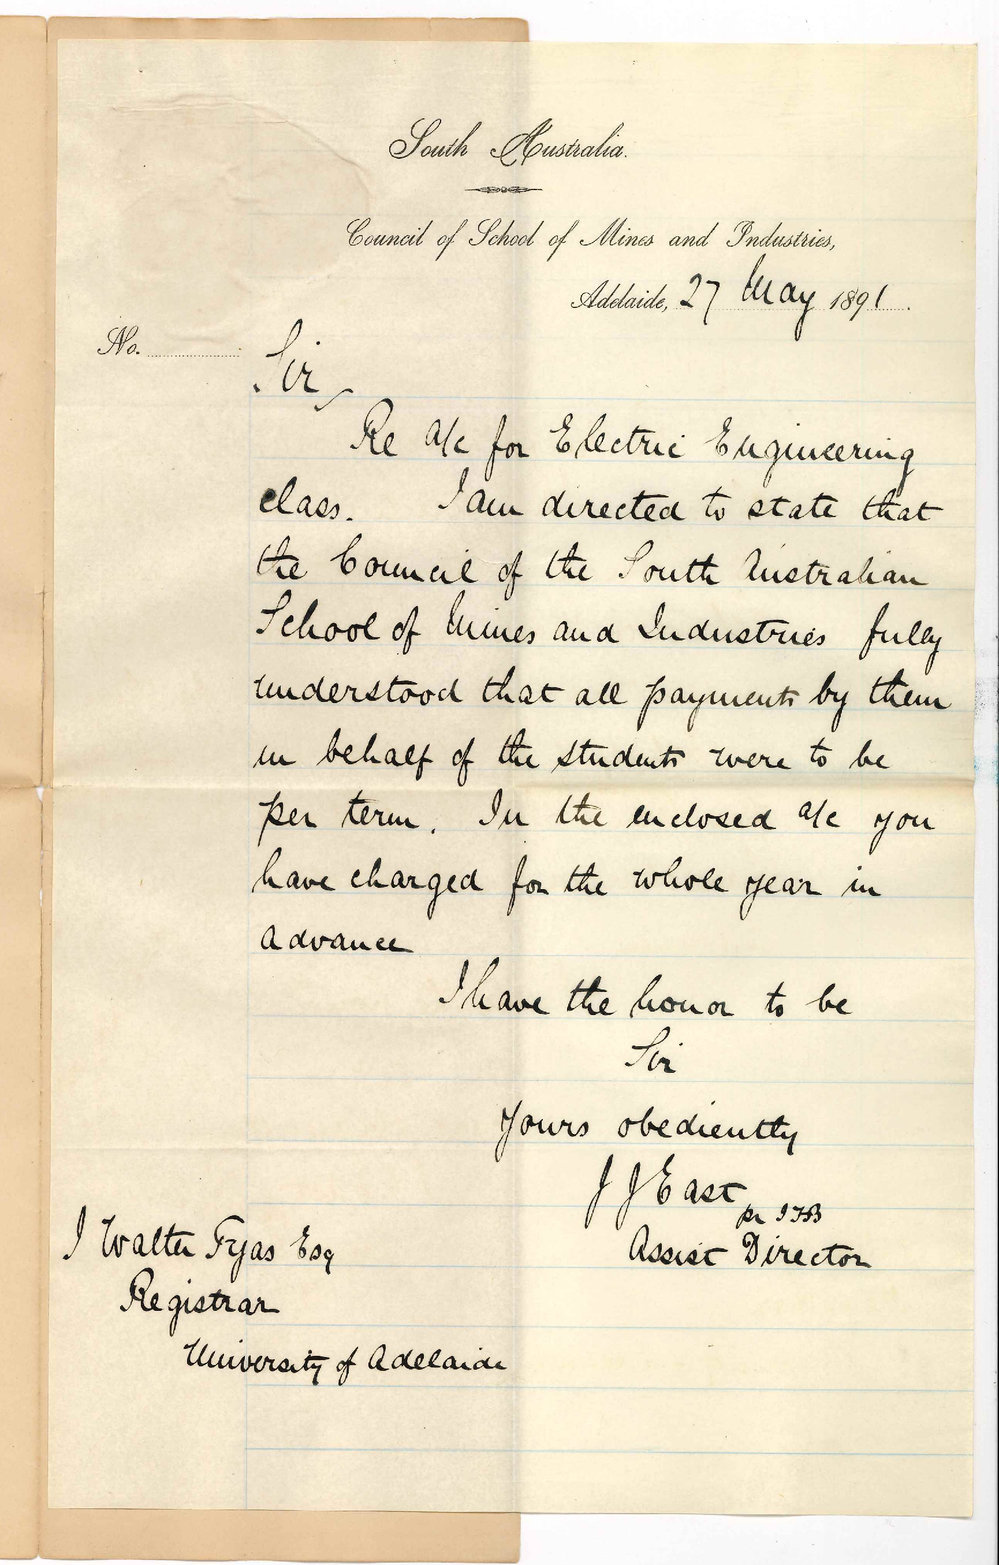 South Australia.
Council of School of Mines and Industries,
Adelaide, 27 May 1891.
No.
Sir
Re a/c for Electric Engineering
class. I am directed to state that
the Council of the South Australian
School of Mines and Industries fully
understood that all payments by them
in behalf of the students were to be
per term. In the enclosed a/c you
have charged for the whole year in
advance
I have the honor to be
Sir
Yours obediently
J J East
pr
Assist Director
J Walter Tyas Esq
Registrar
University of Adelaide